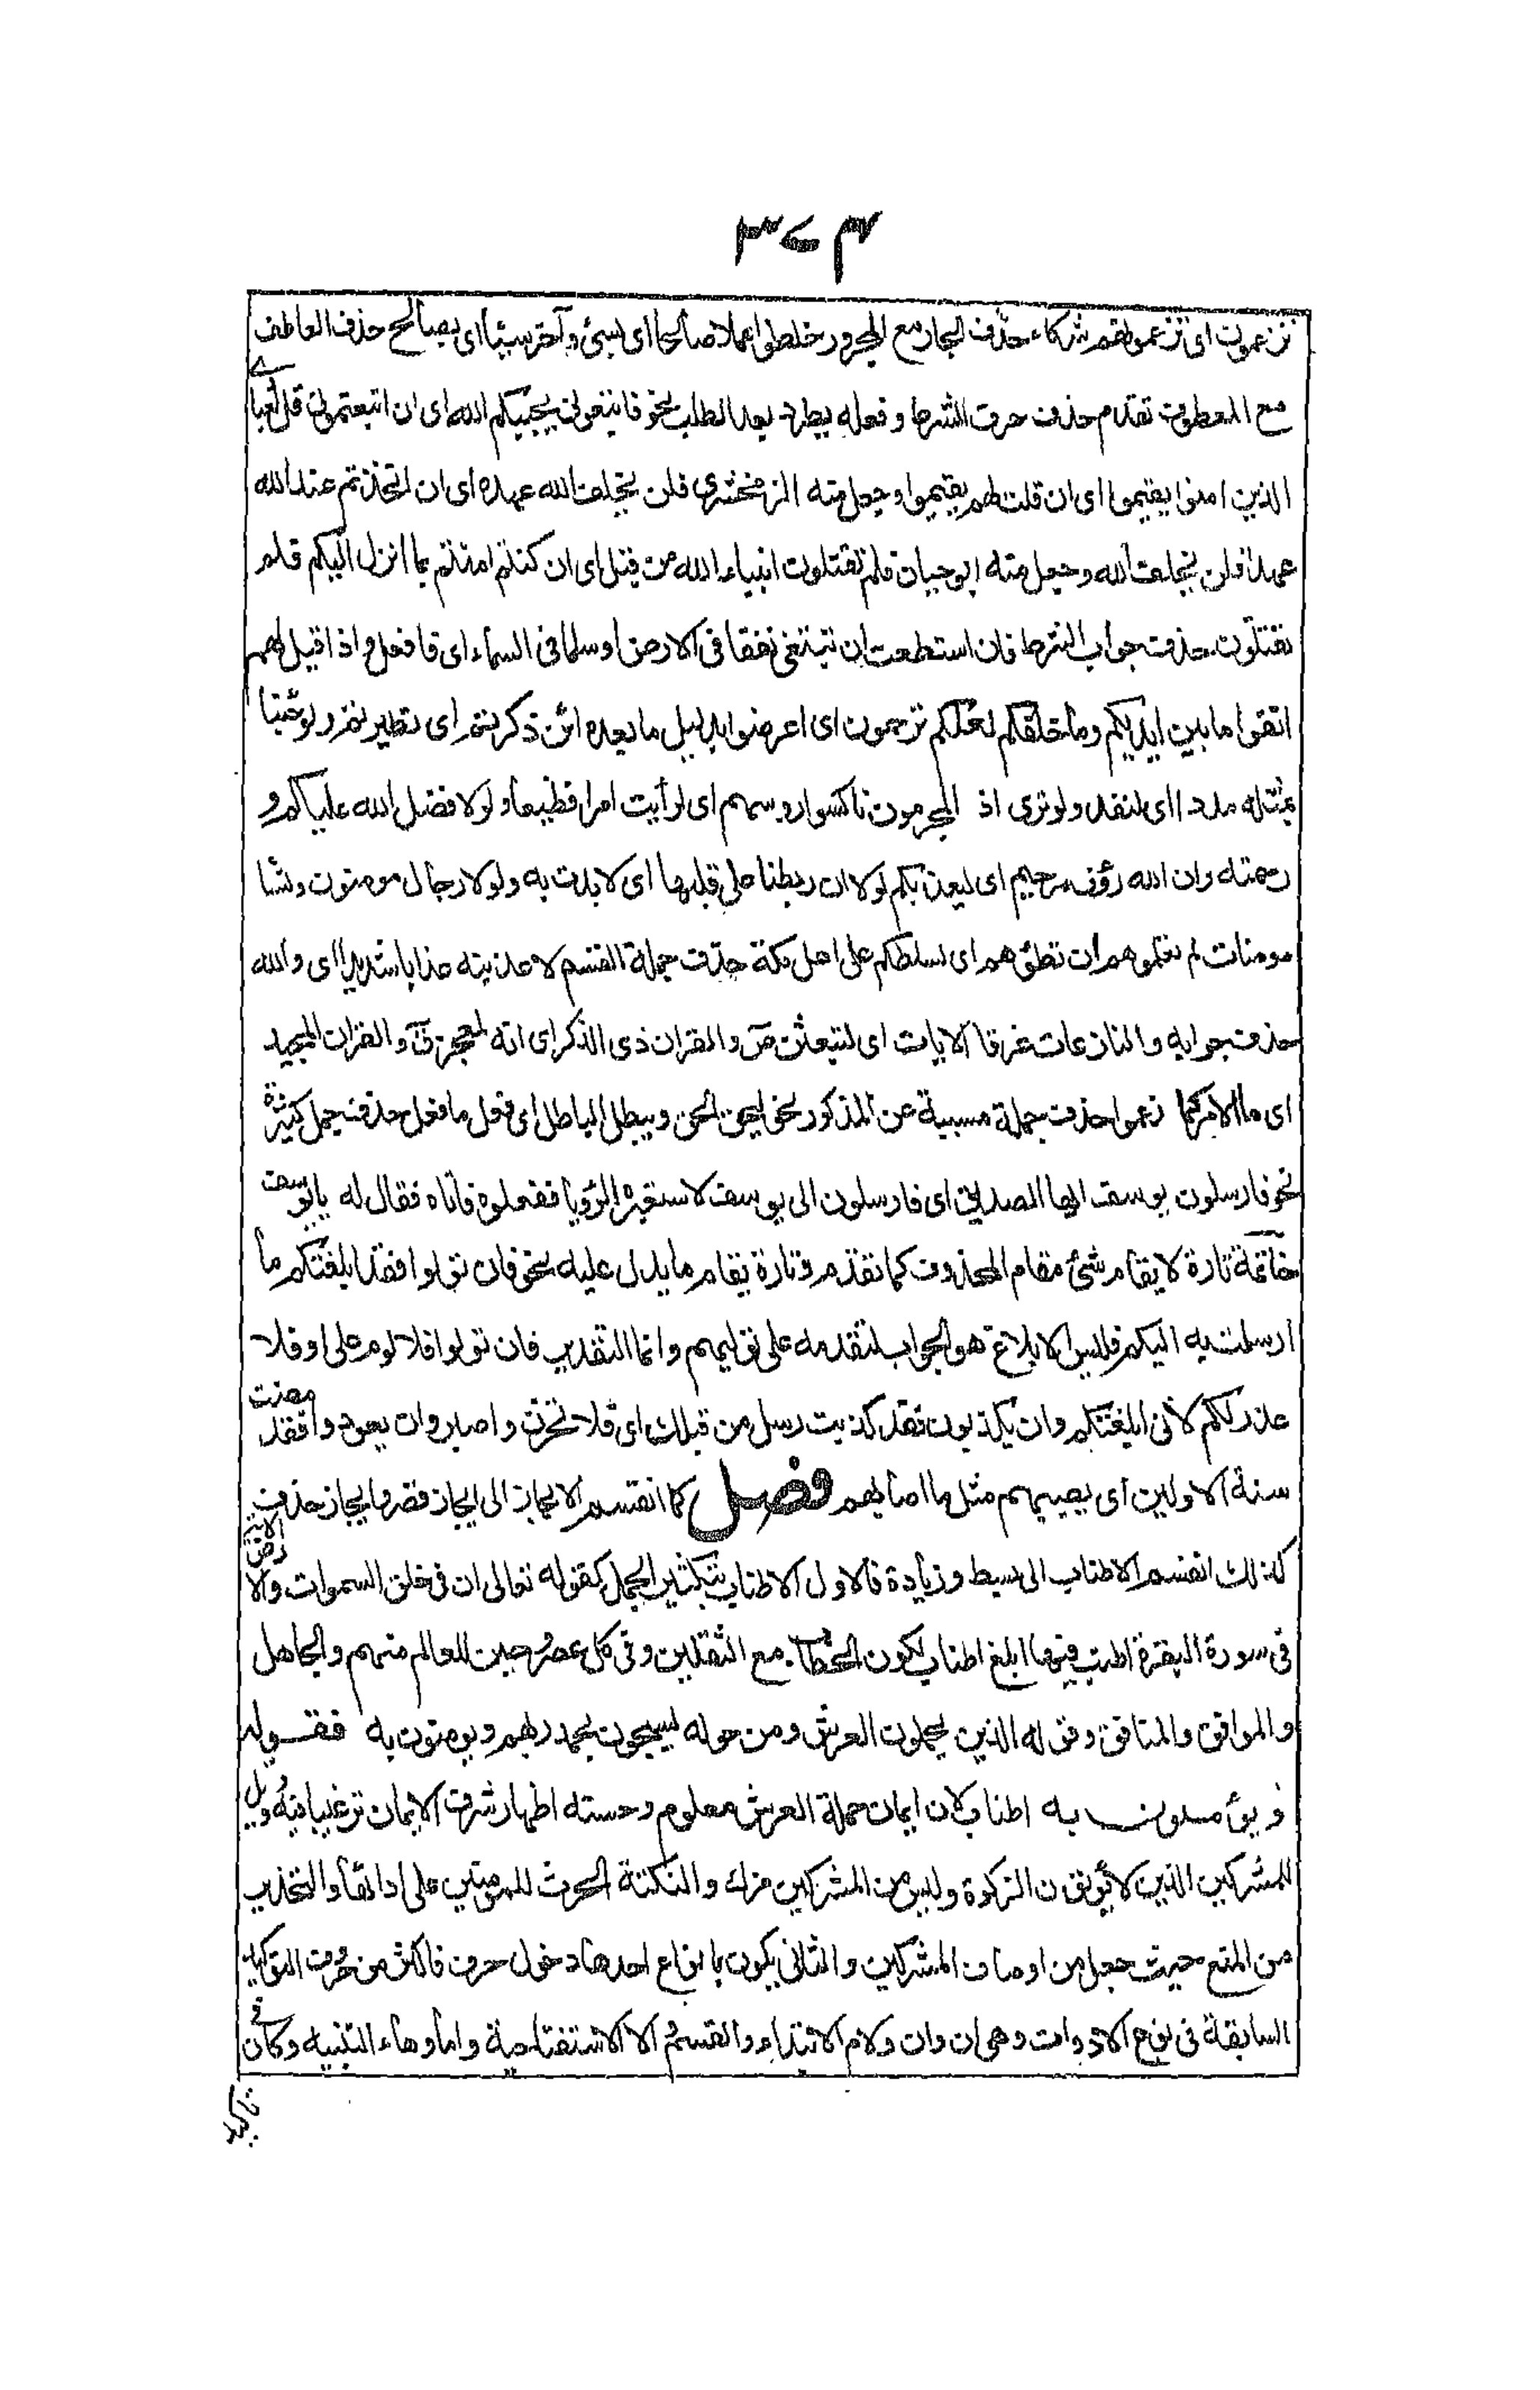 ٣٧٣
تزعمون اى تزعمونهم شركاء حذف الجار مع المجرور خلطوا عملا صالحا اى بسيئ وآخر سيئا اى بصالح حذف العاطف
مع المعطوف تقدم حذف حرف الشرط وفعله يطرد بعد الطلب نحو فاتبعونى يحببكم الله اى ان اتبعتمونى قل لعبادى
الذين امنوا يقيموا اى ان قلت لهم يقيموا وجعل منه الزمخشرى فلن يخلف الله عهده اى ان اتخذتم عند الله
عهدا فلن يخلف الله وجعل منه ابو حيان فلم تقتلون انبياء الله من قبل اى ان كنتم امنتم بما انزل اليكم فلم
تقتلون حذف جواب الشرط فان استطعت ان تبتغى نفقا فى الارض او سلما فى السماء اى فافعل واذا قيل لهم
اتقوا ما بين ايديكم وما خلفكم لعلكم ترحمون اى اعرضوا بدليل ما بعده ائن ذكرتم اى تطيرتم ولو جئنا
بمثله مددا اى لنفد ولو ترى اذ المجرمون ناكسوا روسهم اى لرأيت امرا فظيعا ولولا فضل الله عليكم و
رحمته وان الله رؤف رحيم اى لعذبكم لولا ان ربطنا على قلبها اى لابدت به ولولا رجال مومنون ونسا
مومنات لم تعلموهم ان تطئوهم اى لسلطكم على اهل مكة حذف جملة القسم لاعذبنه عذابا شديدا اى والله
حذف جوابه والنازعات غرقا الايات اى لتبعثن ص والقران ذى الذكر اى انه لمعجز ق والقران المجيد
اى ما الامر كما زعموا حذف جملة مسببية عن المذكور نحو ليحق الحق ويبطل الباطل اى فعل ما فعل حذف جمل كثيرة
نحو فارسلون يوسف ايها الصديق اى فارسلون الى يوسف لاستعبره الرؤيا ففعلوه فاتاه فقال له يا يوسف
خاتمة تارة لا يقام شئ مقام المحذوف كما تقدم وتارة يقام ما يدل عليه نحو فان تولوا فقد ابلغتكم ما
ارسلت به اليكم فليس الابلاغ هو الجواب لتقدمه على توليهم وانما التقدير فان تولوا فلا لوم على او فلا
عذر لكم لأنى ابلغتكم وان يكذبوك فقد كذبت رسل من قبلك اى فلا تحزن واصبر وان يعودوا فقد مضت
سنة الاولين اى يصيبهم مثل ما اصابهم فصل كما انقسم الايجاز الى ايجاز قصر وايجاز حذف
كذلك انقسم الاطناب الى بسط وزيادة فالاول الاطناب بتكثير الجمل كقوله تعالى ان فى خلق السموات والارض الاية
فى سورة البقرة اطنب فيها ابلغ اطناب لكون الخطاب مع الثقلين وفى كل عصر وحين للعالم منهم والجاهل
والموافق والمنافق وقوله الذين يحملون العرش ومن حوله يسبحون بحمد ربهم ويومنون به فقوله
ويؤمنون به اطناب لان ايمان حملة العرش معلوم وحسنه اظهار شرف الايمان ترغيبا فيه وويل
للمشركين الذين لا يؤتون الزكوة وليس من المشركين مزك والنكتة الحث للمومنين على ادائها والتحذير
من المنع حيث جعل من اوصاف المشركين والثانى يكون بانواع احدها دخول حرف فاكثر من حروف التوكيد
السابقة فى نوع الادوات وهى ان وان ولام الابتداء والقسم والا الاستفتاحية واما وها التنبيه وكان فى
تاكيد